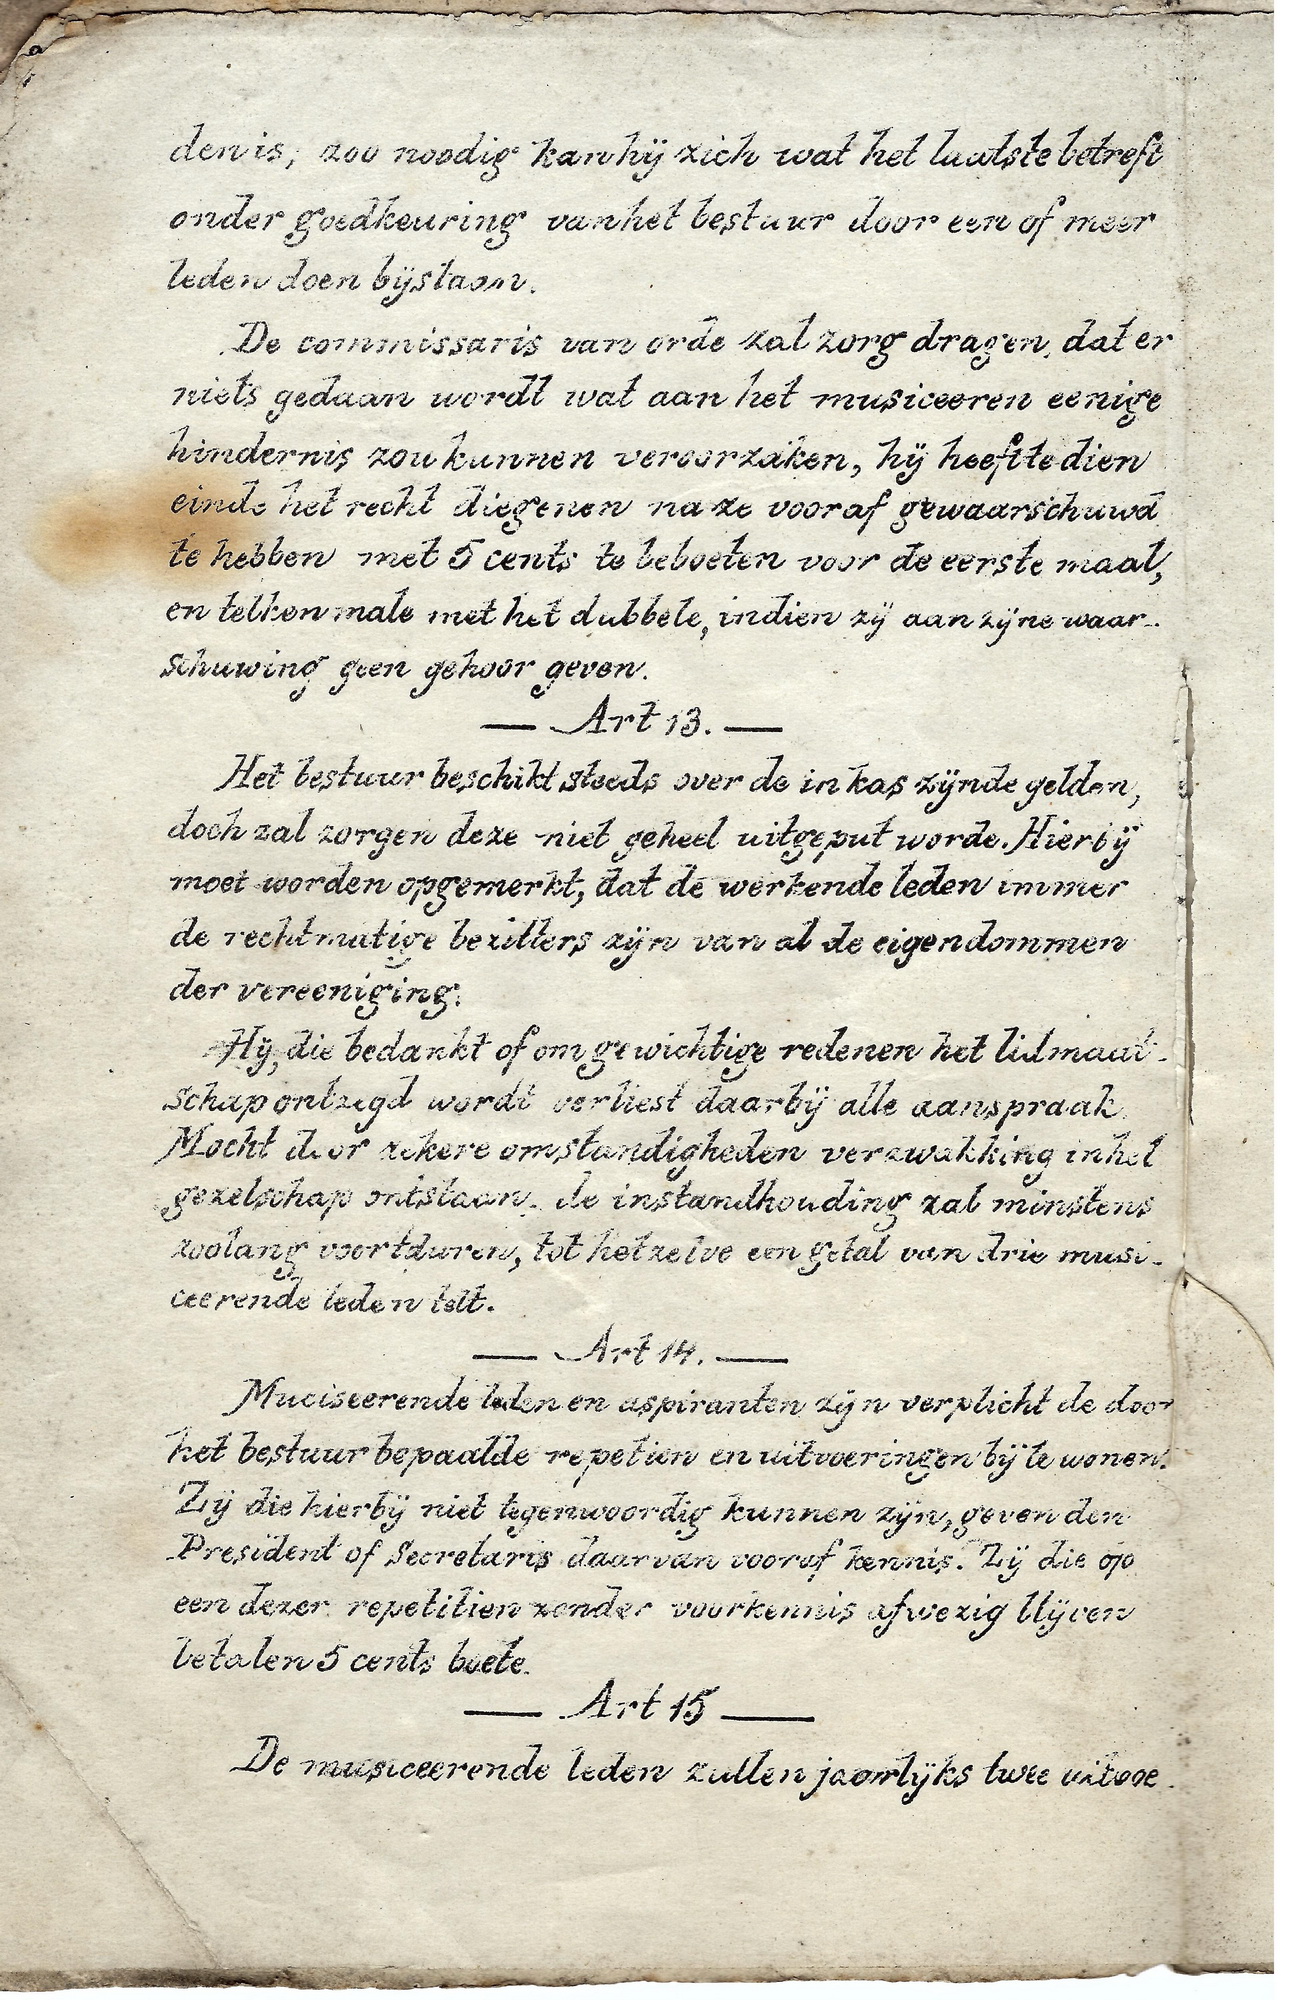 den is, zoo noodig kan hij zich wat het laatste betreft
onder goedkeuring van het bestuur door een of meer
leden doen bijstaan.
De commissaris van orde zal zorg dragen, dat er
niets gedaan wordt wat aan het musiceeren eenige
hindernis zou kunnen veroorzaken, hij heeft te dien
einde het recht diegenen na ze vooraf gewaarschuwd
te hebben met 5 cents te beboeten voor de eerste maal,
en telkenmale met het dubbele, indien zij aan zijne waar-
schuwing geen gehoor geven.
— Art 13. —
Het bestuur beschikt steeds over de in kas zijnde gelden,
doch zal zorgen deze niet geheel uitgeput worde. Hierbij
moet worden opgemerkt, dat de werkende leden immer
de rechtmatige bezitters zijn van al de eigendommen
der vereeniging.
Hij, die bedankt of om gewichtige redenen het lidmaat-
schap ontzegd wordt verliest daarbij alle aanspraak.
Mocht door zekere omstandigheden verzwakking in het
gezelschap ontstaan, de instandhouding zal minstens
zoolang voortduren, tot hetzelve een getal van drie musi-
ceerende leden telt.
— Art 14. —
Muciseerende leden en aspiranten zijn verplicht de door
het bestuur bepaalde repetien en uitvoeringen bij te wonen.
Zij die hierbij niet tegenwoordig kunnen zijn, geven den
President of Secretaris daarvan vooraf kennis. Zij die op
een dezer repetitien zonder voorkennis afwezig blijven
betalen 5 cents boete.
— Art 15 —
De musiceerende leden zullen jaarlijks twee uitvoe-